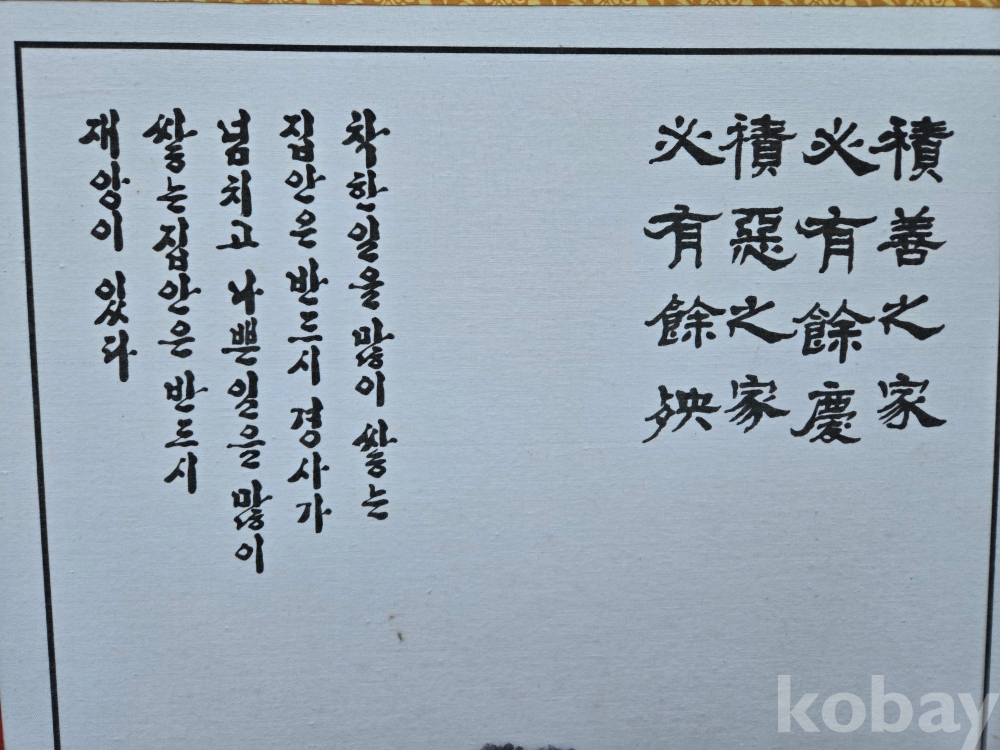 積善之家
必有餘慶
積惡之家
必有餘殃
착한일을 많이 쌓는
집안은 반드시 경사가
넘치고 나쁜일을 많이
쌓는집안은 반드시
재앙이 있다
kobay